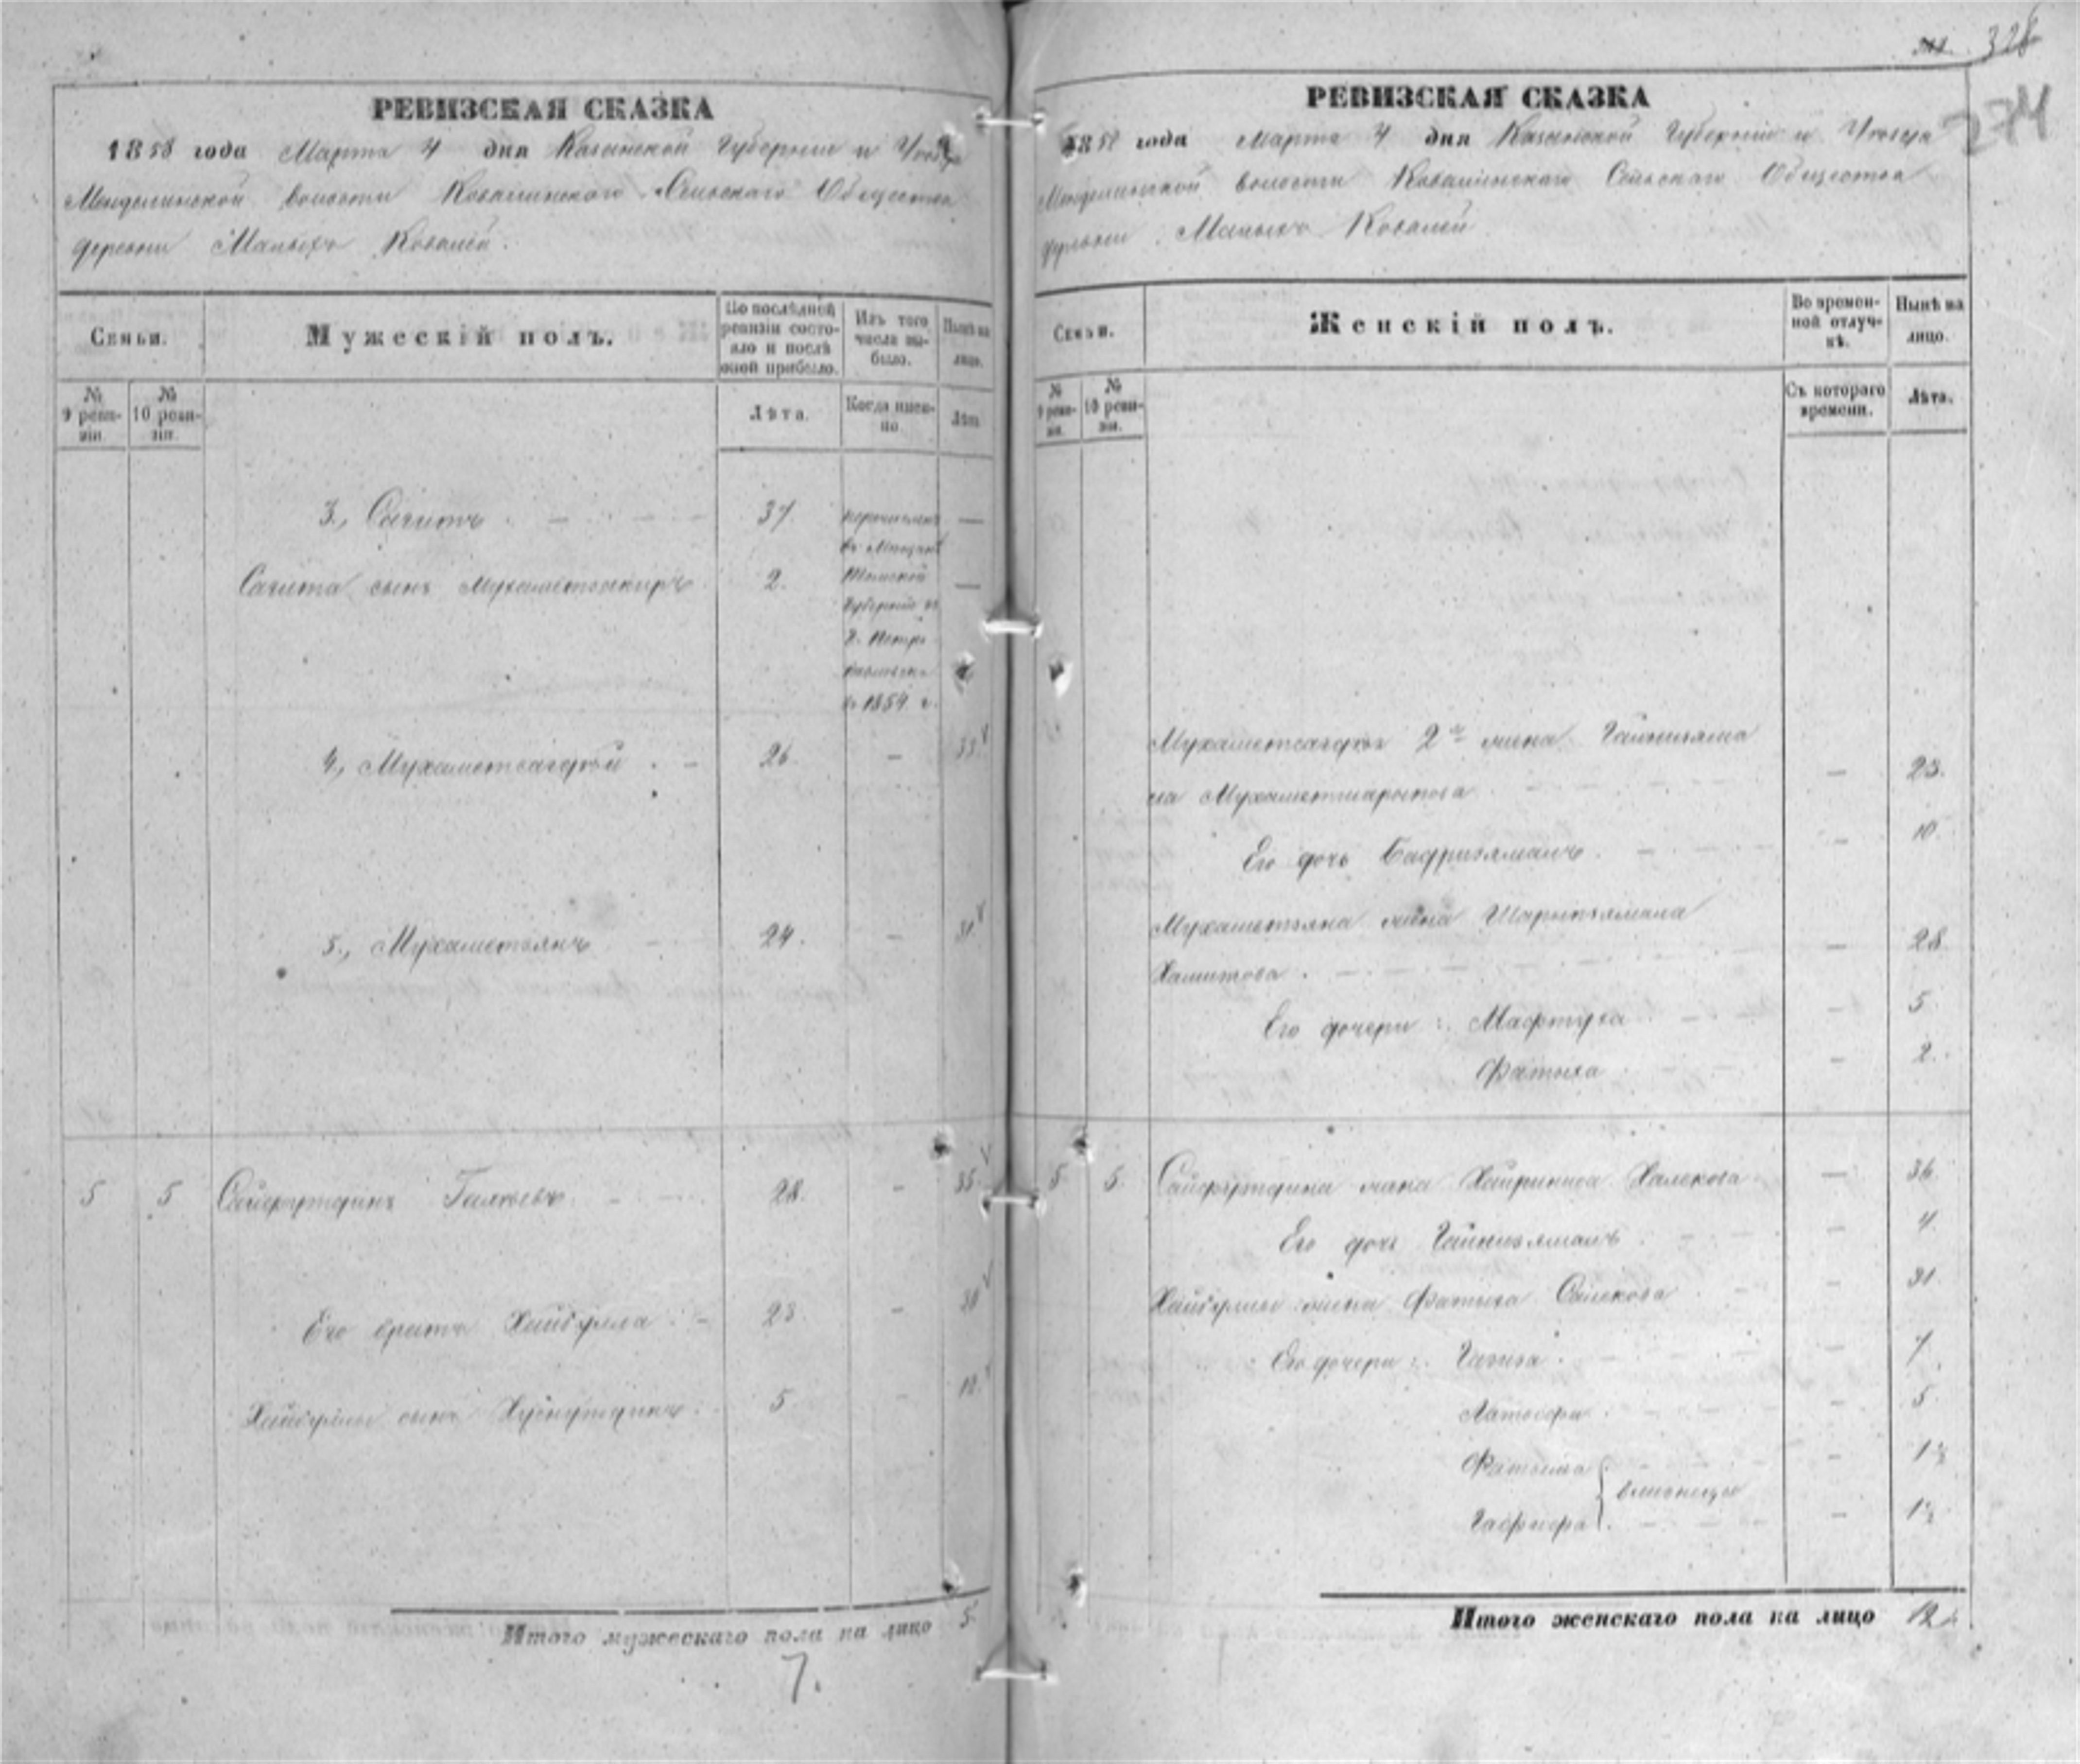 328
274
РЕВИЗСКАЯ СКАЗКА
1858 года Марта 4 дня Казанской Губернии и Уезда
Менделинской волости Ковалинского Сельскаго Общества
деревни Малыхъ Ковалей.
Семьи.
Мужескій полъ.
По послѣдней ревизіи состояло и послѣ оной прибыло.
Изъ того числа выбыло.
Нынѣ на лицо.
№ 9 ревизіи.
№ 10 ревизіи.
Лѣта.
Когда именно.
Лѣта.
3., Сагитъ — 37 перечисленъ —
въ Мещане
Сагита сынъ Мухаметзакиръ 2. Томской —
Губерніи въ
г. Петро
павловскъ
въ 1854 г.
4., Мухаметсагдей — 26 — 33
5., Мухаметзянъ — 24. — 31
5 5 Сайфутдинъ — 28. — 35.
Его братъ Хайбулла — 23 — 30
Хайбуллы сынъ Хуснутдинъ 5 — 12.
Итого мужескаго пола на лицо 5.
7.
РЕВИЗСКАЯ СКАЗКА
1858 года Марта 4 дня Казанской Губерніи и Уезда
Менделинской волости Ковалинскаго Сельскаго Общества
деревни Малыхъ Ковалей
Семьи.
Женскій полъ.
Во временной отлучкѣ.
Нынѣ на лицо.
№ 9 ревизіи.
№ 10 ревизіи.
Съ котораго времени.
Лѣта.
2я жена
на Мухаметшарыпова — 23.
Его дочь Бадризямалъ — 10
Мухаметзяна жена Шарипзямала
Хамитова — 28.
Его дочери: Мафтуха — 5
Фатыха — 2.
5 5. Сайфутдина жена Хайриниса Халекова — 36
Его дочь Гайнизямалъ — 4.
Хайбуллы жена Фатыха — 31.
Его дочери: — 7
5.
Фатыма — 1½
близнецы
1½
Итого женскаго пола на лицо 12